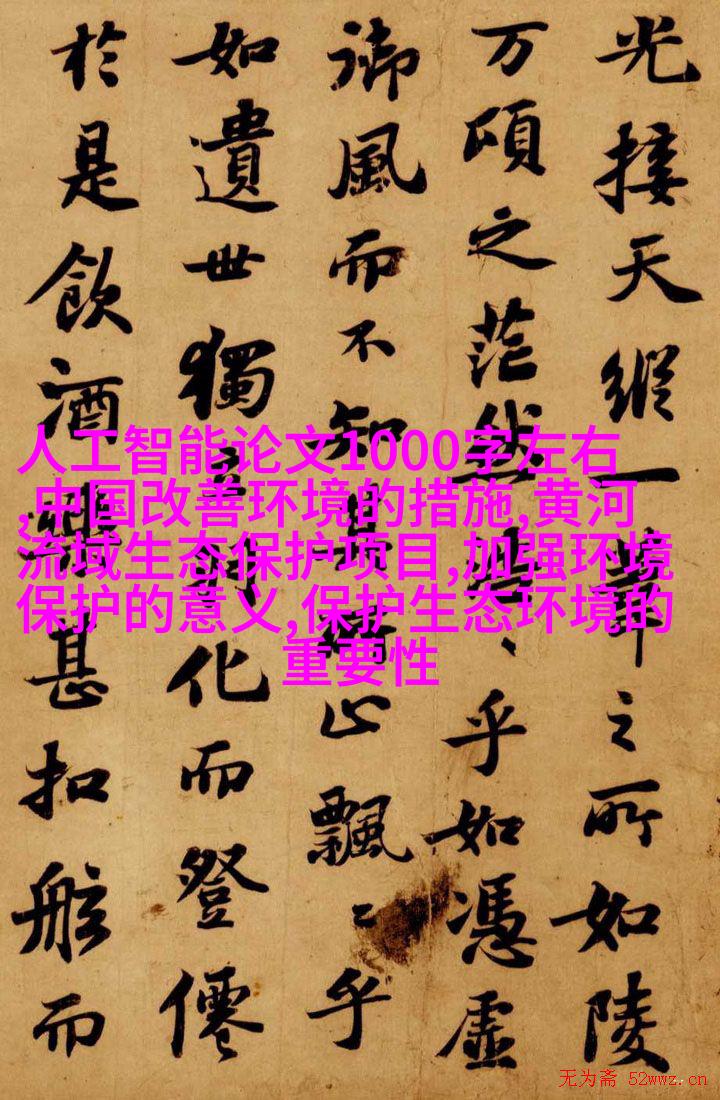 光接天縱一之所如陵
万頃之茫然乎如憑虛
御風而不知止飄〻乎
如遺世獨化而登僊
於是飲酒甚扣舷而
人工智能论文1000字左右
,中国改善环境的措施,黄河
流域生态保护项目,加强环境
保护的意义,保护生态环境的
重要性
无为斋 52wwz.cn